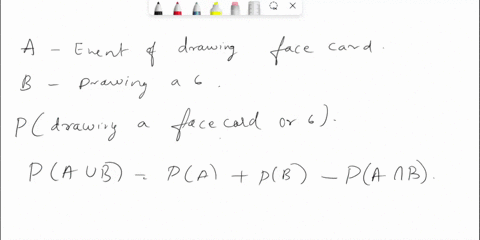 A - Event of drawing face card.
B - Drawing a 6.
P(drawing a face card or 6).
P(A ∪ B) = P(A) + P(B) - P(A ∩ B).